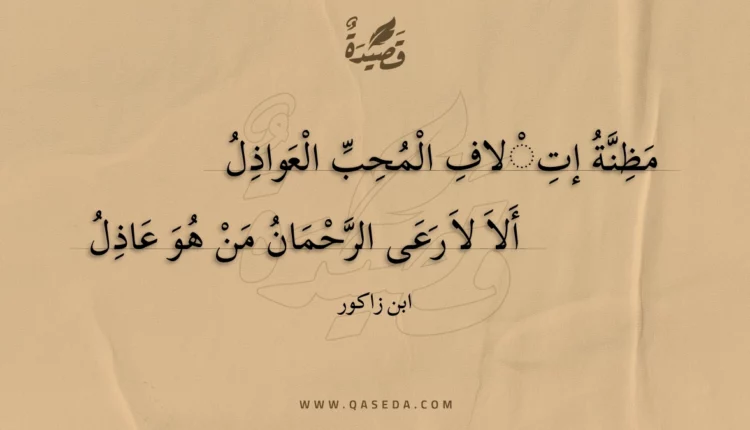 قَصِيدَةٌ
مَظِنَّةُ إتِْلافِ الْمُحِبِّ الْعَواذِلُ
أَلاَ لاَ رَعَى الرَّحْمَانُ مَنْ هُوَ عَاذِلُ
ابن زاكور
WWW.QASEDA.COM